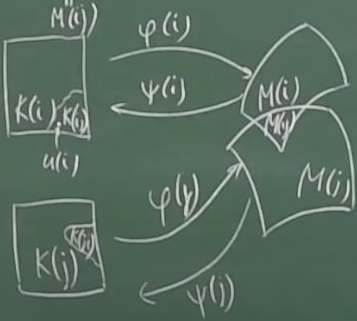 M(ij)
φ(i)
ψ(i)
K(i)
K(ij)
u(i)
M(i)
M(ij)
M(j)
φ(j)
K(j)
K(ij)
ψ(j)